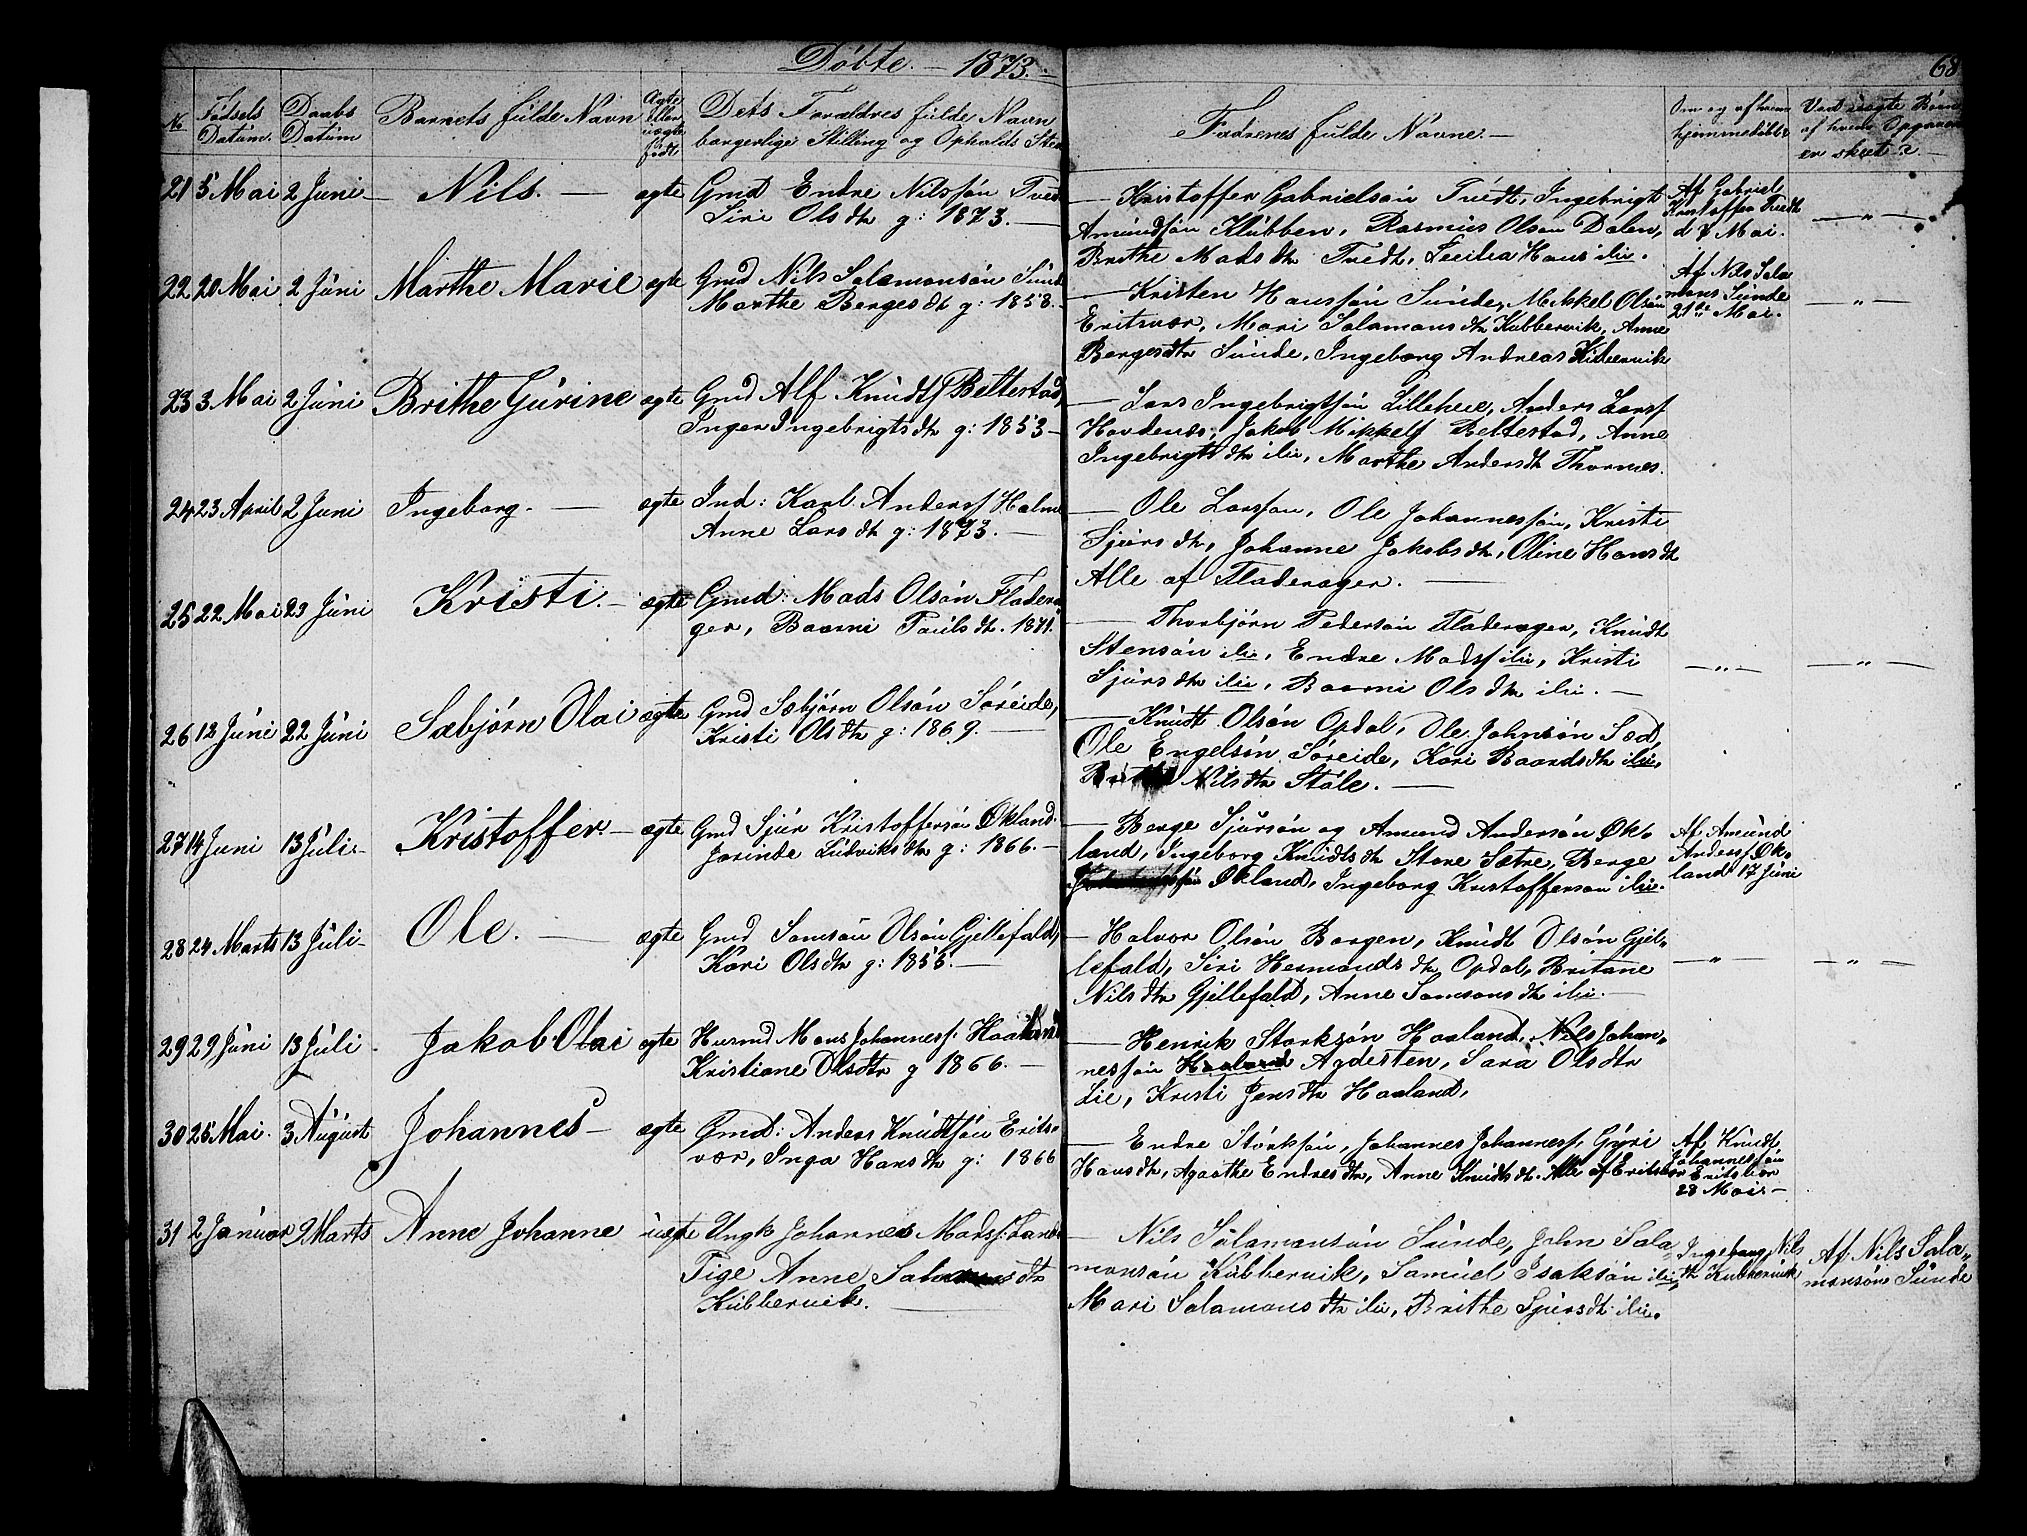 Döbte. — 1873.
68
No
Födsels Datum.
Daabs Datum
Barnets fulde Navn
Ægte eller uægte födt
Dets Forældres fulde Navn
borgerlige Stilling og Opholds Sted
Faderenes fulde Navne. —
Om og af hvem hjemmedöbt
Ved uægte Börn af hvem Opgaven er skeet?
21 5 Mai 2 Juni — Nils. — ægte Gmd Endre Nilssön Tvedt
Siri Olsdtr g: 1873. —
— Kristoffer Gabrielsön Tvedt, Ingebrigt
Amundsön Klubben, Rasmus Olsen Dalen,
Brithe Madsdtr Tvedt, Cecilia Hans ibid.
Af Gabriel
Kristoffer Tvedt
d 7 Mai.
— " —
22 20 Mai 2 Juni Marthe Marie ægte Gmd Nils Salamonsön Sunde
Marthe Bergesdtr g: 1858. —
— Kristen Hanssön Sunde, Mikkel Olsön
Eritsvær, Mari Salamonsdtr Kubbervik, Anne
Bergesdtr Sunde, Ingeborg Andreas Kubbervik
Af Nils Sala
mons Sunde
21de Mai.
— " —
23 3 Mai 2 Juni Brithe Gurine ægte Gmd Alf Knudts Beltestad,
Inger Ingebrigtsdtr g: 1853 —
— Lars Ingebrigtsön Lilleheie, Anders Larss
Hovdenæs, Jakob Mikkels Beltestad, Anne
Ingebrigtsdtr ibid, Marthe Andersdt Thornes.
24 23 April 2 Juni Ingeborg. — ægte Ind: Karl Anderss Halm
Anne Larsdtr g: 1873. —
— Ole Larsson, Ole Johannessön, Kristi
Sjursdtr, Johanne Jakobsdtr, Oline Hansdt
Alle af Fladerager. —
25 22 Mai 29 Juni Kristi. — ægte Gmd: Mads Olsön Fladera
ger, Baarni Paulsdtr. 1871.
— Thorbjörn Pedersön Fladerager, Knudt
Stensön ibid, Endre Madss ibid, Kristi
Sjursdtr ibid, Baarni Olsdtr ibid. —
— " — — " —
26 12 Juni 22 Juni Sæbjörn Olai ægte Gmd Sæbjörn Olsön Söreide,
Kristi Olsdtr g: 1869. —
— Knudt Olsön Opdal, Ole Johnsön Sæd,
Ole Engelsön Söreide, Kari Baardsdtr ibid,
Brithe Nilsdtr Stöle. —
27 14 Juni 13 Juli — Kristoffer — ægte Gmd Sjur Kristoffersön Økland
Jorinde Ludviksdtr g: 1866. —
— Berge Sjursön og Amund Andersön Øk-
land, Ingeborg Knudtsdtr Store Sætre, Berge
Økland, Ingeborg Kristofferson ibid.
Af Amund
Anderss Øk-
land 17 Juni
28 24 Marts 13 Juli — Ole. — ægte Gmd Samson Olsön Gjellefald,
Kari Olsdtr g: 1855. —
— Halvor Olsön Borgen, Knudt Olsön Gjel-
lefald, Siri Hermandsdtr Opdal, Britane
Nilsdtr Gjellefald, Anne Samsonsdtr ibid. —
— " — — " —
29 29 Juni 13 Juli Jakob Olai ægte Husmd Mons Johanness. Haaland
Kristiane Olsdtr g 1866. —
— Henrik Storksön Haaland, Nils Johan-
nessön Haaland Agdesten, Sara Olsdtr
Lie, Kristi Jensdtr Haaland,
30 25 Mai. 3 August Johannes — ægte Gmd: Anders Knudtsön Erits-
vær, Inga Hansdtr g: 1866
— Endre Störksön, Johannes Johanness, Gyri
Hansdtr, Agaathe Endresdtr, Anne Knudtsdtr. Alle af Eritsvær
Af Knudt
Johannessön
Eritsvær
28 Mai —
31 2 Januar 9 Marts Anne Johanne uægte Ungk Johannes Madss: Lande
Pige Anne Salamonsdtr
Kubbervik. —
— Nils Salamonsön Sunde, John Sala-
monsön Kubbervik, Samuel Isaksön ibid,
Mari Salamonsdtr ibid, Brithe Sjursdt ibid.
Ingeborg Nils
dtr Kubbervik
Af Nils Sala-
monsön Sunde